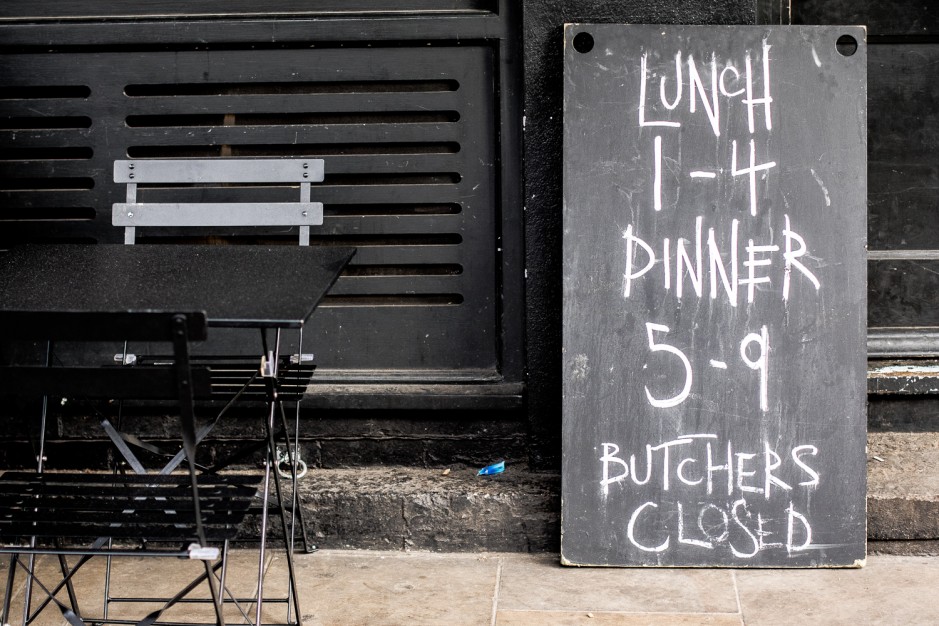 LUNCH
1-4
DINNER
5-9
BUTCHERS
CLOSED